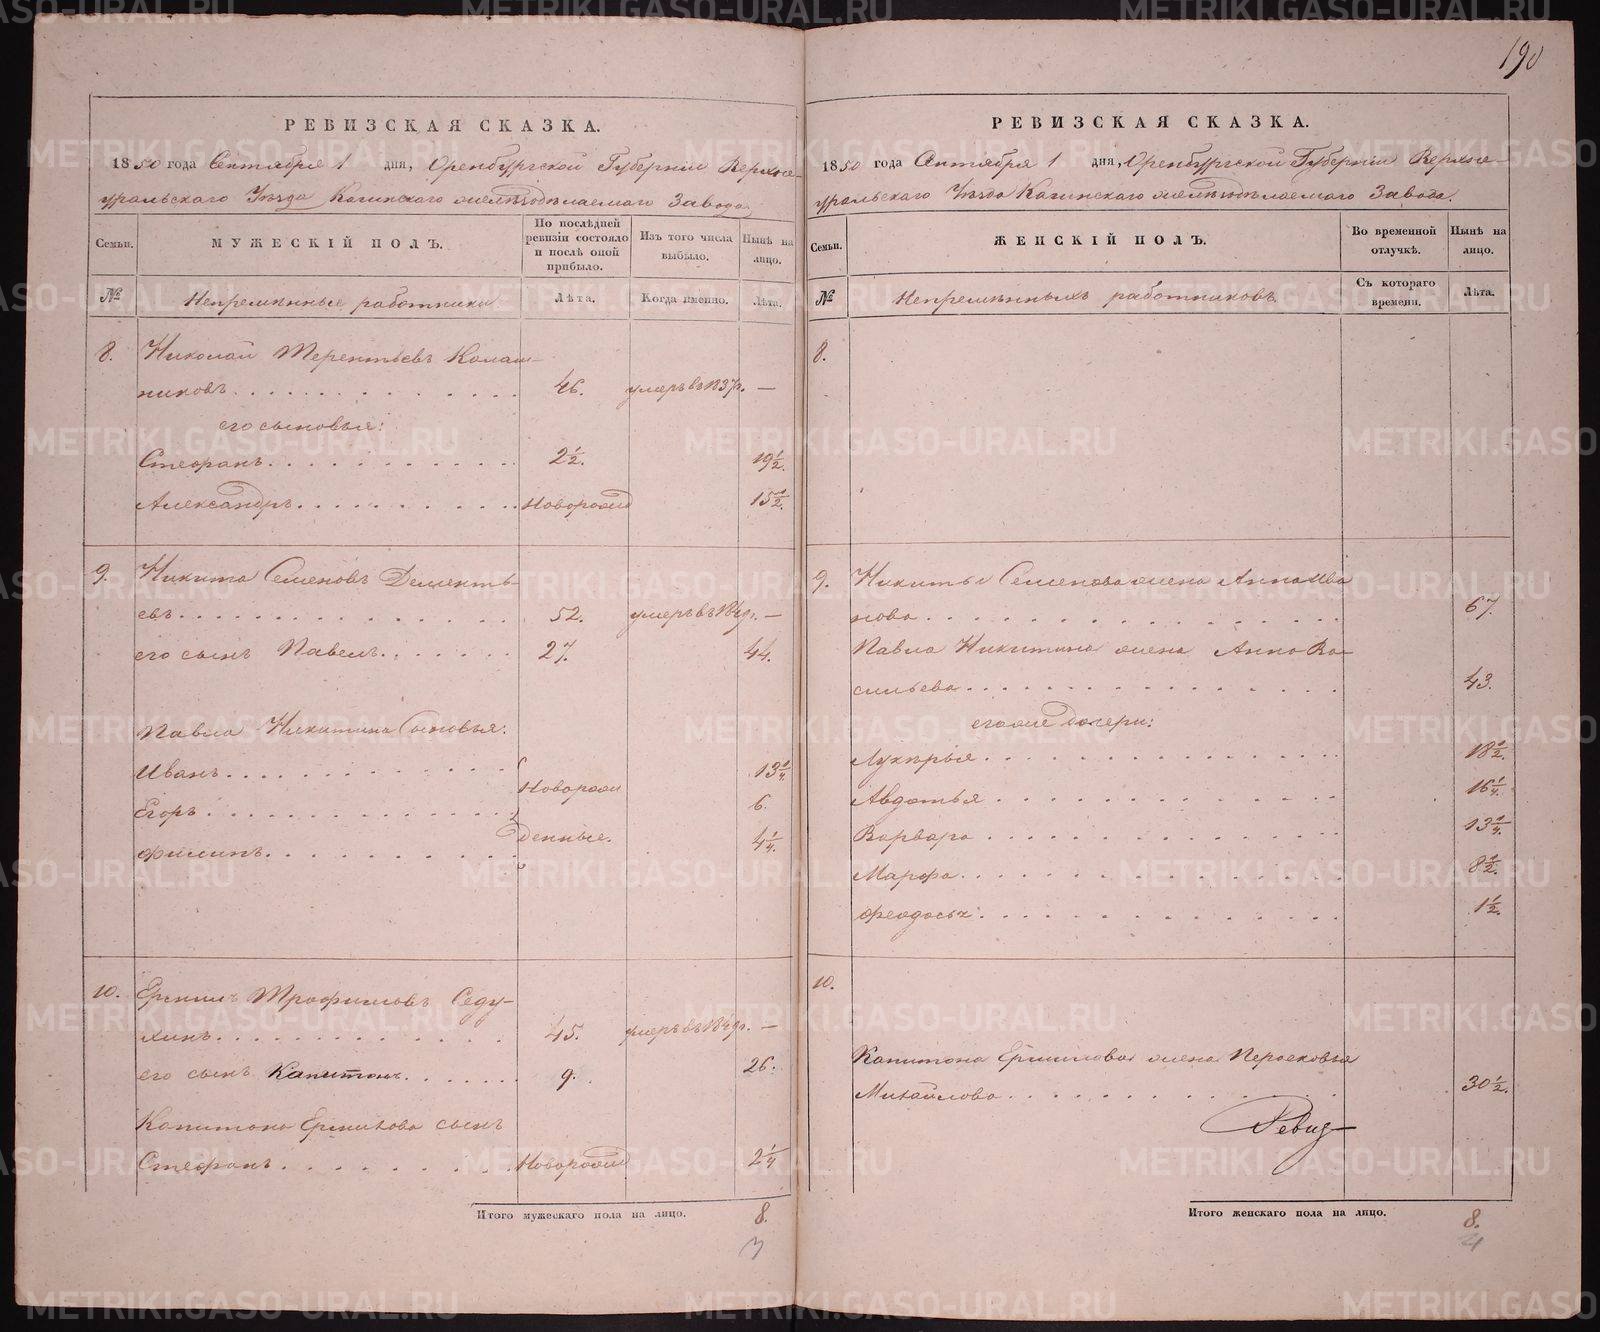 190
РЕВИЗСКАЯ СКАЗКА.
1850 года Сентября 1 дня, Оренбургской Губернии Верхне-
уральскаго Уезда Кагинскаго железоделаемаго Завода
Семьи.
МУЖЕСКІЙ ПОЛЪ.
По послѣдней ревизіи состояло и послѣ оной прибыло.
Изъ того числа выбыло.
Нынѣ на лицо.
№
Непременные работники
Лѣта.
Когда именно.
Лѣта.
8. Николай Терентьевъ Калаш-
никовъ 46. умеръ въ 1837г. —
его сыновья:
Стефанъ 2½. 19½.
Александръ Новорожд 15½.
9. Никита Семеновъ Дементь
евъ 52. умеръ въ 184 г. —
его сынъ Павелъ 27. 44.
Павла Никитина Сыновья:
Иванъ 13¼.
Новорож
Егоръ 6.
денные.
Филипъ 4¼.
10. Ермилъ Трофимовъ Седу-
хинъ 45. умеръ въ 184 г. —
его сынъ Капитонъ 9. 26.
Капитона Ермилова сынъ
Стефанъ Новорожд 2¼
Итого мужескаго пола на лицо. 8.
РЕВИЗСКАЯ СКАЗКА.
1850 года Октября 1 дня, Оренбургской Губернии Верхне-
уральскаго Уезда Кагинскаго железоделаемаго Завода.
Семьи.
ЖЕНСКІЙ ПОЛЪ.
Во временной отлучкѣ.
Нынѣ на лицо.
№
Непременныхъ работниковъ
Съ котораго времени.
Лѣта.
8.
9. Никиты Семенова жена Анна Ива
нова 67.
Павла Никитина жена Анна Ва-
сильева 43.
его же дочери:
Лукерья 18½.
Авдотья 16¼.
Варвара 13¼.
Марфа 8½.
Феодосья 1½.
10.
Капитона Ермилова жена Перасковья
Михайлова 30½.
Ревиз
Итого женскаго пола на лицо. 8.
METRIKI.GASO-URAL.RU